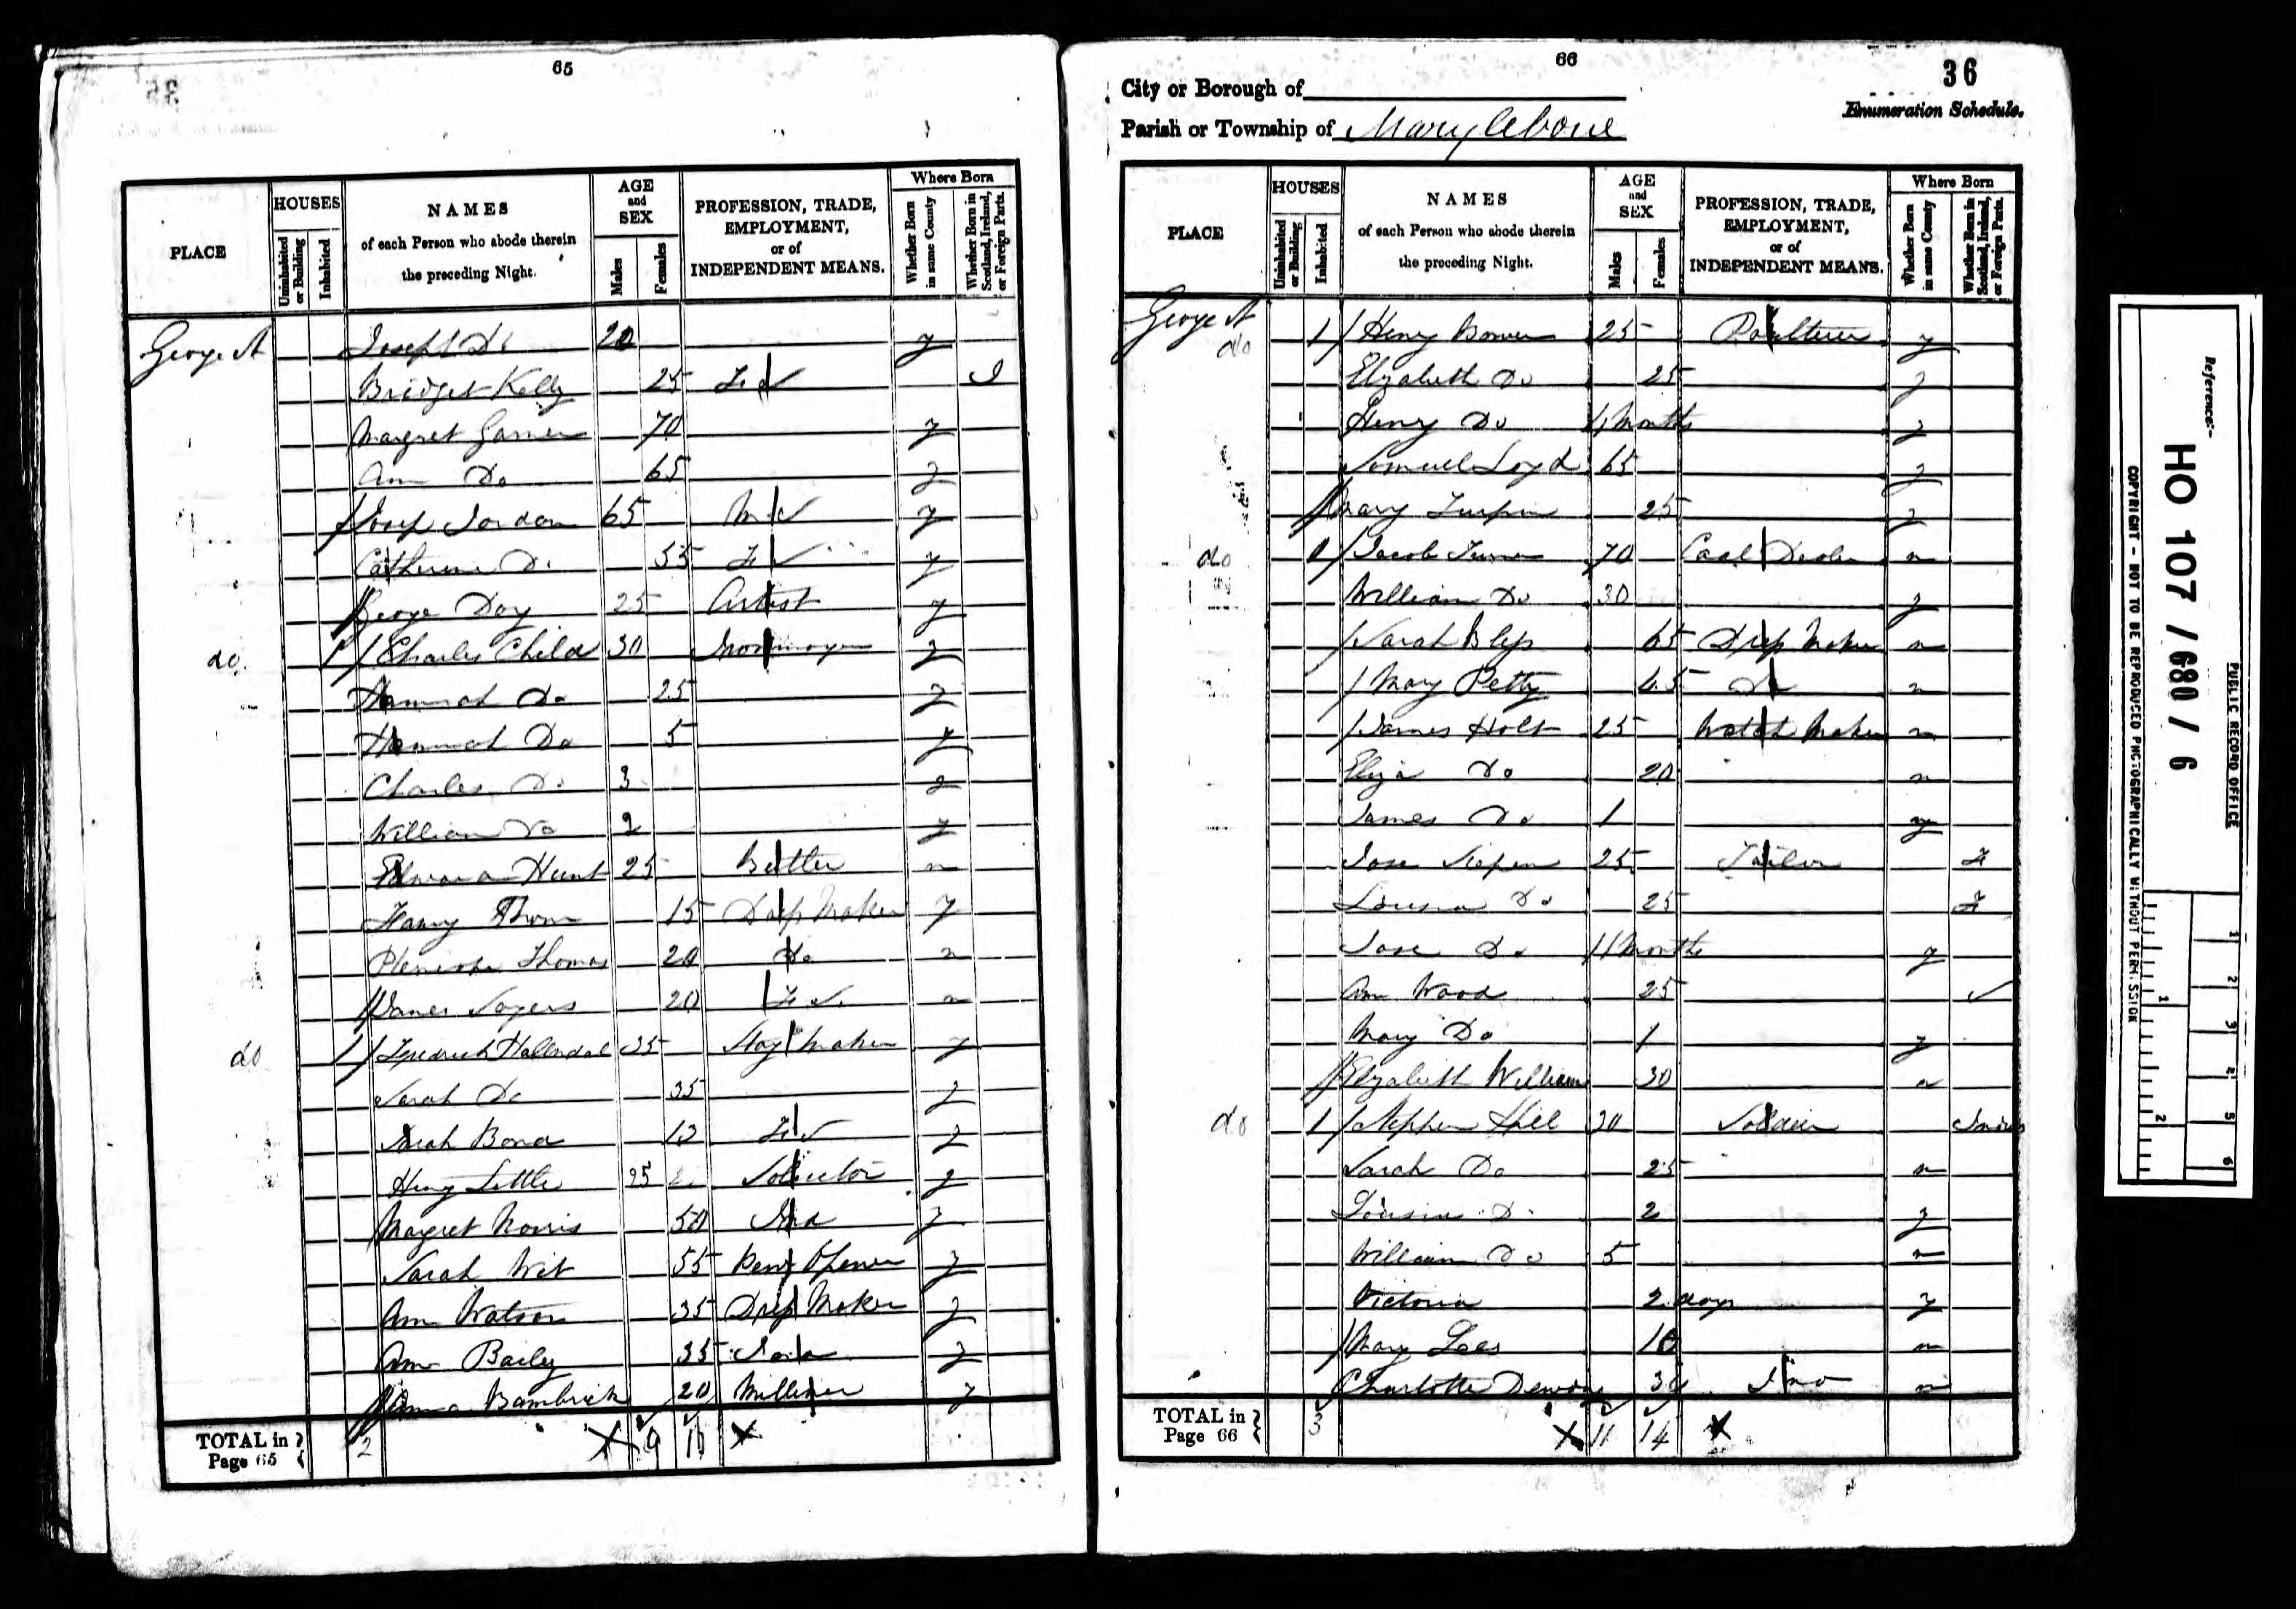 65
PLACE
HOUSES
Uninhabited or Building
Inhabited
NAMES
of each Person who abode therein
the preceding Night.
AGE
and
SEX
Males
Females
PROFESSION, TRADE,
EMPLOYMENT,
or of
INDEPENDENT MEANS.
Where Born
Whether Born in same County
Whether Born in Scotland, Ireland, or Foreign Parts.
George St Joseph Do 20 y
Bridget Kelly 25 F.S I
Margret Garner 70 y
Ann Do 65 y
Josep Jordan 65 M.S y
Catherine Do 55 F.S y
George Day 25 Artist y
do 1 Charles Child 30 y
Hannah Do 25 y
Hannah Do 5 y
Charles Do 3 y
William Do 2 y
Edward Hunt 25 Butler n
Fanny 15 Dress Maker y
Thomas 20 Do n
Sayers 20 F.S. n
do 1 35 Stay Maker y
Sarah Do 35 y
Sarah Bond 13 F.S y
Henry Little 25 Solicitor y
Margret Norris 50 Ind y
Sarah 55 y
Ann Watson 35 Dress Maker y
Ann Baily 35 y
Bambrick 20 Milliner y
TOTAL in
Page 65
2 9 16
66
36
City or Borough of
Enumeration Schedule.
Parish or Township of Marylebone
PLACE
HOUSES
Uninhabited or Building
Inhabited
NAMES
of each Person who abode therein
the preceding Night.
AGE
and
SEX
Males
Females
PROFESSION, TRADE,
EMPLOYMENT,
or of
INDEPENDENT MEANS.
Where Born
Whether Born in same County
Whether Born in Scotland, Ireland, or Foreign Parts.
George St do 1 Henry Bower 25 Poulterer y
Elizabeth Do 25 y
Henry Do Months y
Samuel Loyd 65 y
Mary Turpin 25 y
do 1 Jacob Turner 70 Coal Dealer n
William Do 30 y
Sarah 65 Dress Maker n
Mary Petty 45 Do n
James Holt 25 Watch Maker n
Eliza Do 20 n
James Do 1 y
25 Tailor F
Louisa Do 25 F
Do 11 Months y
Ann Wood 25
Mary Do 1 y
Elizabeth William 30 n
do 1 Stephen Hill 30 Soldier Indies
Sarah Do 25 n
Louisa Do 2 y
William Do 5 n
Victoria 2 days y
Mary Lees 10 n
Charlotte 30 Ind n
TOTAL in
Page 66
3 11 14
Reference:-
HO 107 / 680 / 6
PUBLIC RECORD OFFICE
COPYRIGHT - NOT TO BE REPRODUCED PHOTOGRAPHICALLY WITHOUT PERMISSION
1 2
1 2 3 4 5 6